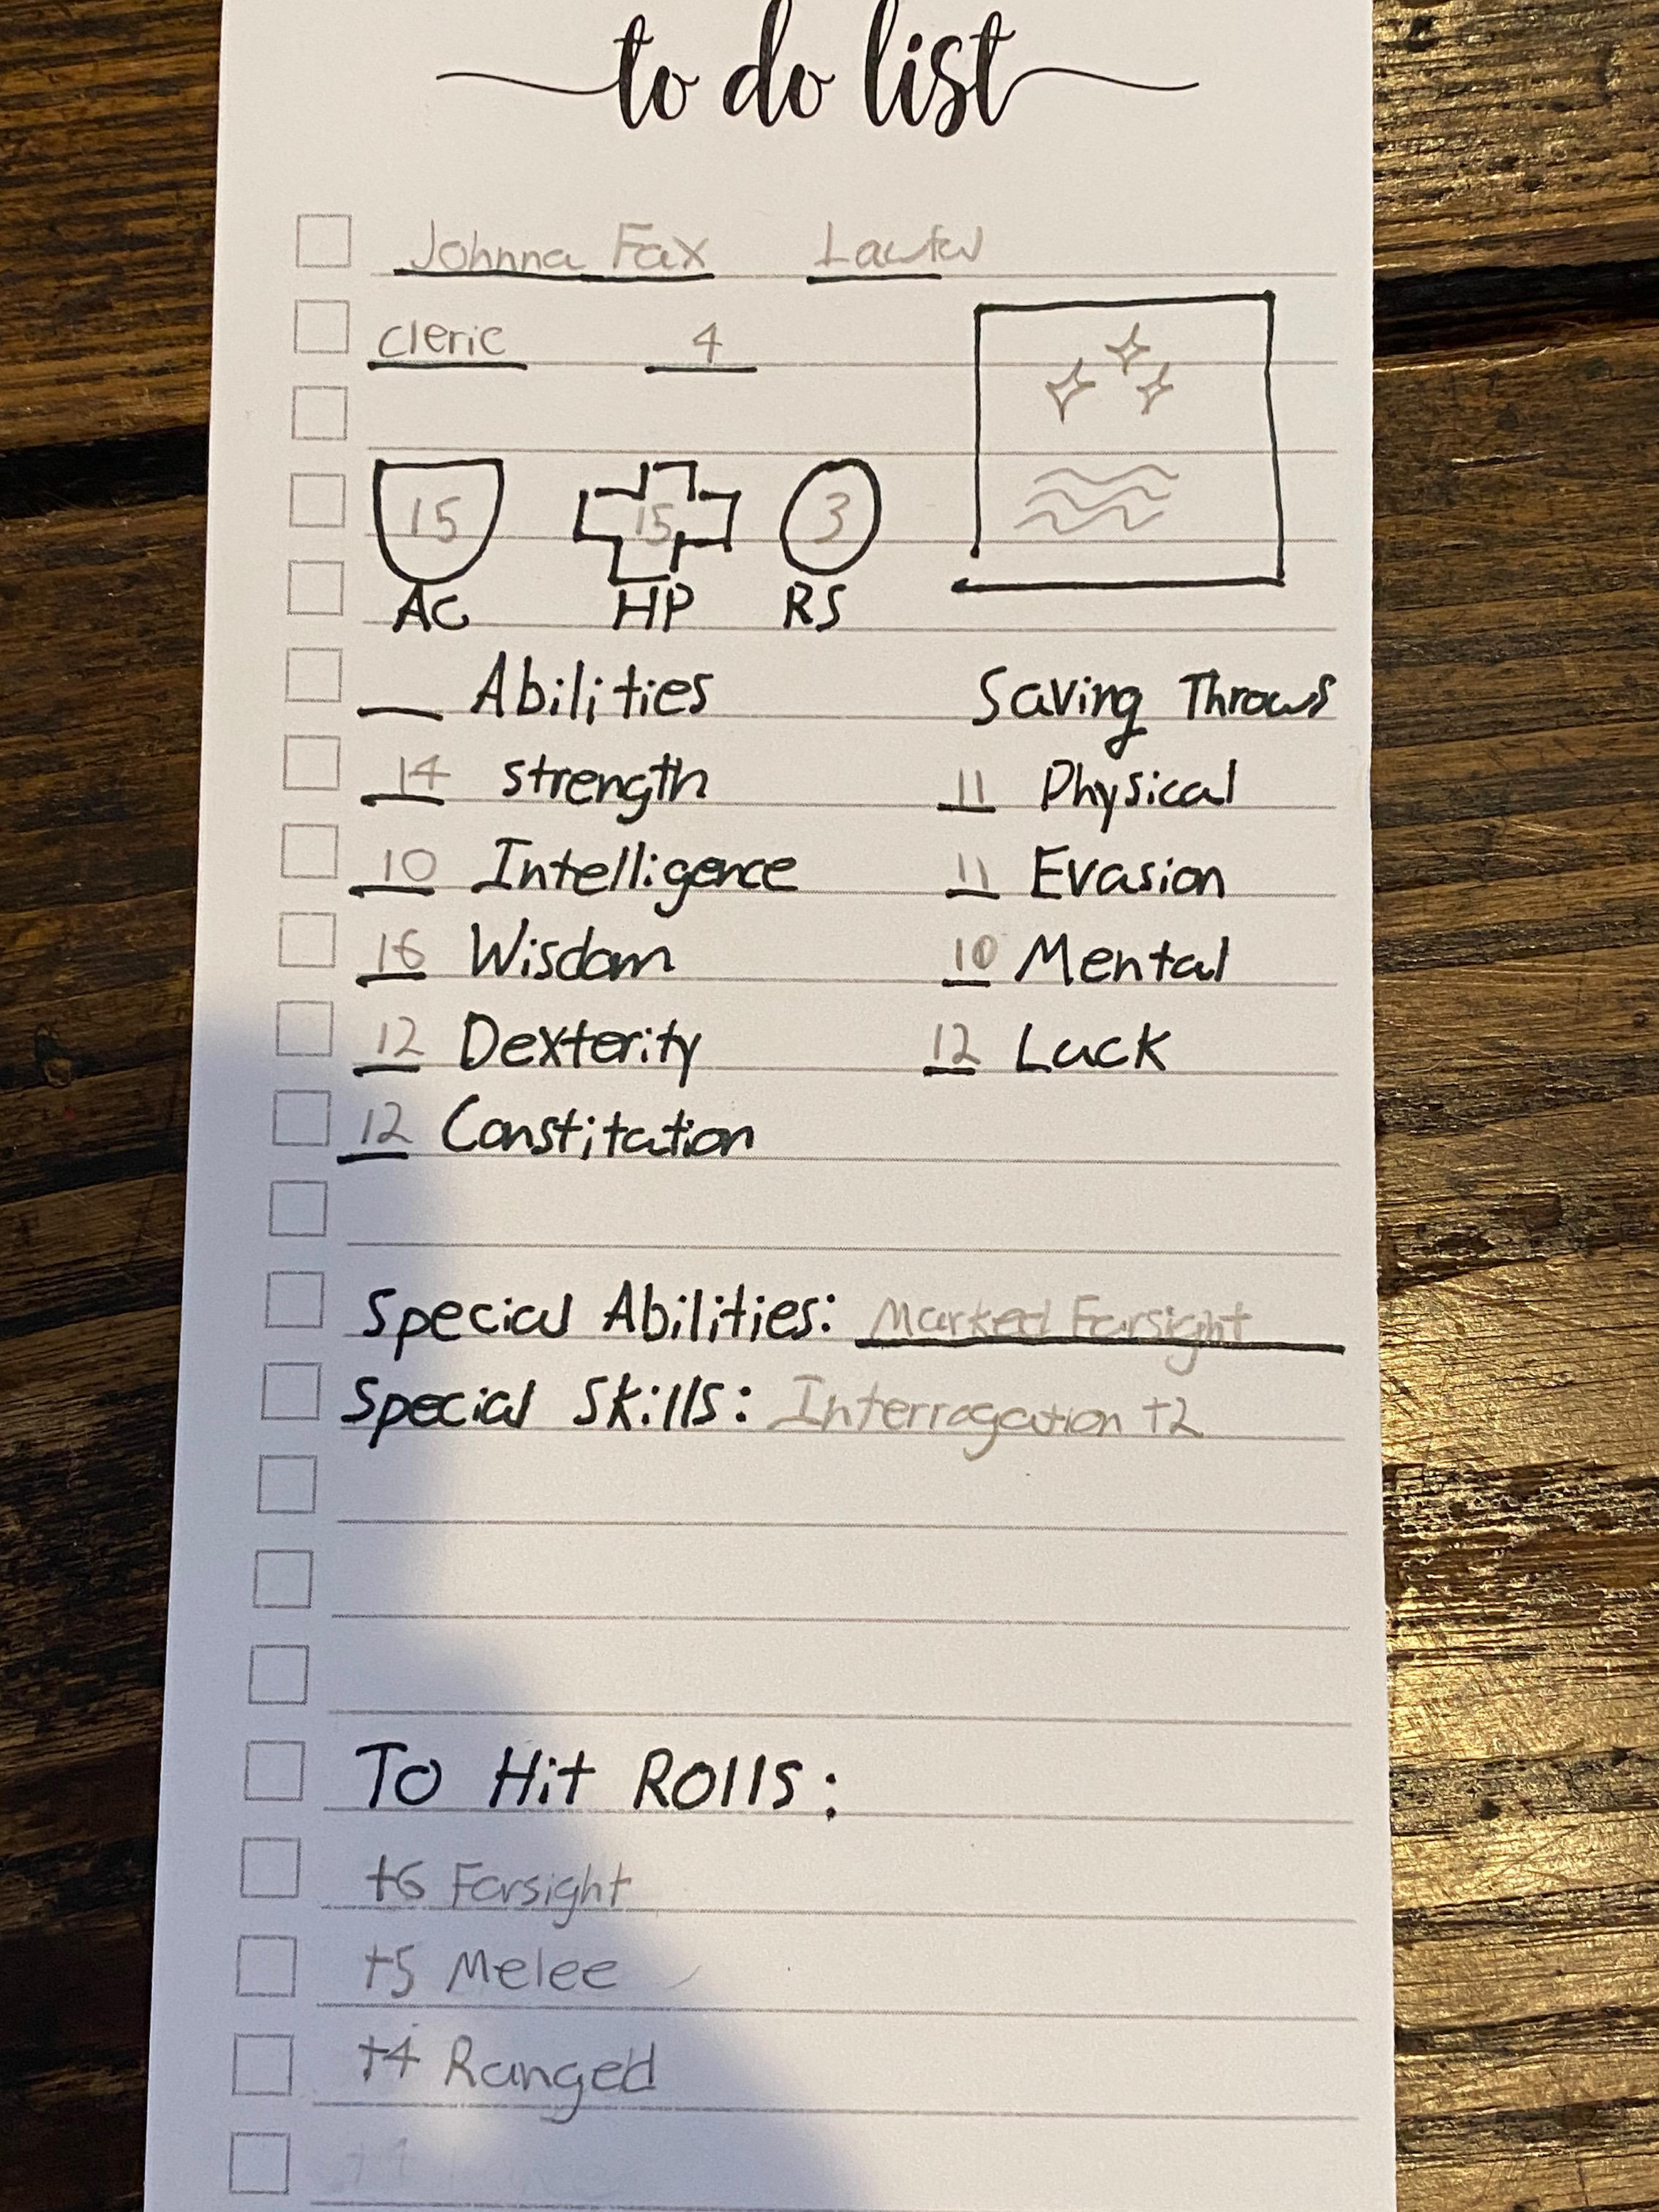 to do list
Johnna Fax Lawful
cleric 4
15 15 3
AC HP RS
Abilities Saving Throws
14 Strength 11 Physical
10 Intelligence 11 Evasion
16 Wisdom 10 Mental
12 Dexterity 12 Luck
12 Constitution
Special Abilities: Marked Farsight
Special Skills: Interrogation +2
To Hit Rolls:
+6 Farsight
+5 Melee
+4 Ranged